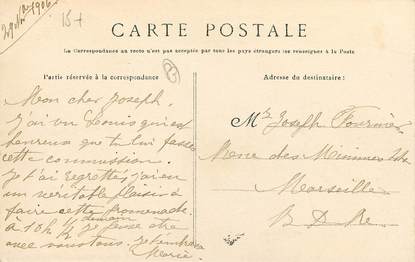 29 1906
15+
CARTE POSTALE
La Correspondance au recto n'est pas acceptée par tous les pays étrangers (se renseigner à la Poste)
Partie réservée à la correspondance
Adresse du destinataire:
Mon cher Joseph.
J'ai vu Louis qui est
heureux que tu lui fasse
cette commission.
Je t'ai regretté, j'ai eu
un véritable plaisir à
faire cette promenade.
demain
à 10h ½ je pense être
avec vous tous. Je t'embrasse
Marie
Mr Joseph Fournier
des Minimes
Marseille
B D R